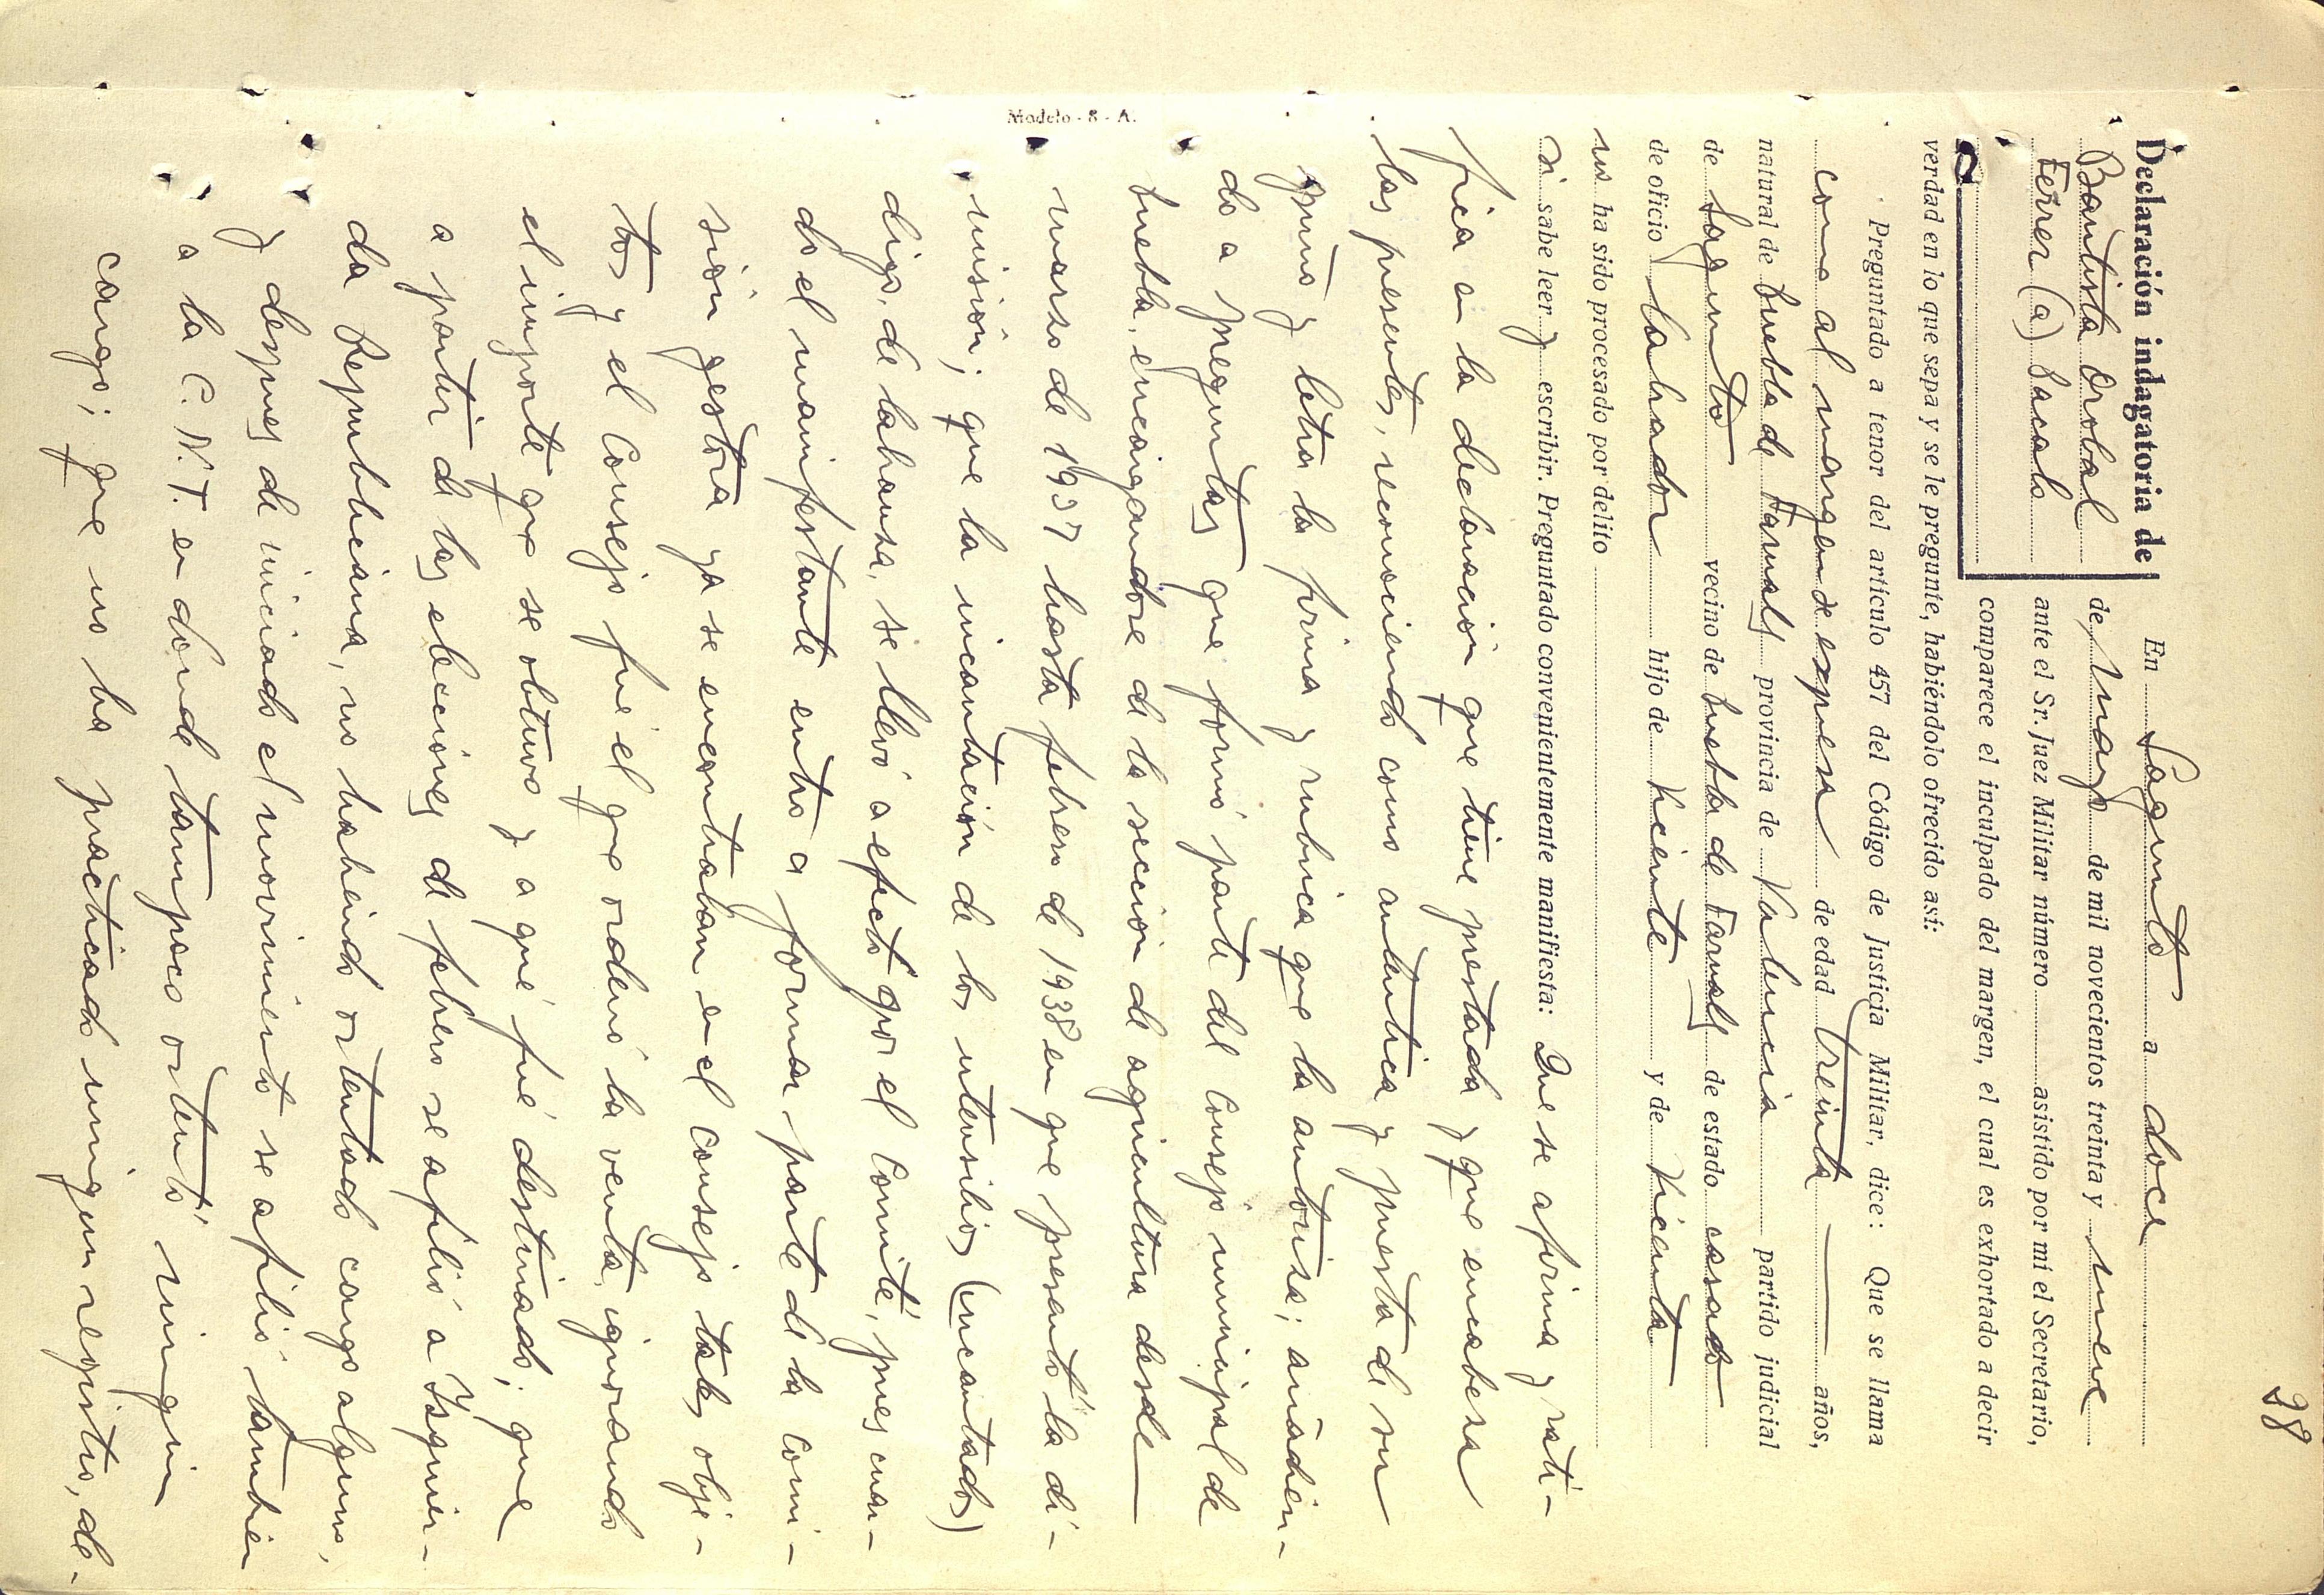 98
Declaración indagatoria de
Bautista Orobal
Ferrer (a) Sacalo
En Sagunto a doce
de Mayo de mil novecientos treinta y nueve
ante el Sr. Juez Militar número asistido por mí el Secretario,
comparece el inculpado del margen, el cual es exhortado a decir
verdad en lo que sepa y se le pregunte, habiéndolo ofrecido así:
Preguntado a tenor del artículo 457 del Código de Justicia Militar, dice: Que se llama
como al margen se expresa de edad treinta años,
natural de Puebla de Farnals provincia de Valencia partido judicial
de Sagunto vecino de Puebla de Farnals de estado casado
de oficio labrador hijo de Vicente y de Vicenta
no ha sido procesado por delito
si sabe leer y escribir. Preguntado convenientemente manifiesta: Que se afirma y rati-
fica en la declaración que tiene prestada y que encabeza
las presentes, reconociendo como autentica y puesta de su
puño y letra la firma y rubrica que la autoriza; añadien-
do a preguntas que formó parte del Consejo municipal de
Puebla, encargandose de la sección de agricultura desde
marzo de 1937 hasta febrero de 1938 en que presentó la di-
misión; que la incautación de los utensilios (incautados)
digo, de labranza, se llevó a efecto por el Comité, pues cuan-
do el manifestante entro a formar parte de la Comi-
sión gestora ya se encontraban en el Consejo tales obje-
tos y el Consejo fué el que ordenó la venta, ignorando
el importe que se obtuvo y a qué fué destinado; que
a partir de las elecciones de febrero se afilió a Izquier-
da Republicana, no habiendo ostentado cargo alguno,
y despues de iniciado el movimiento se afilió tambien
a la C.N.T. en donde tampoco ostentó ningun
cargo; que no ha practicado ningun registro, de-
Modelo - 8 - A.